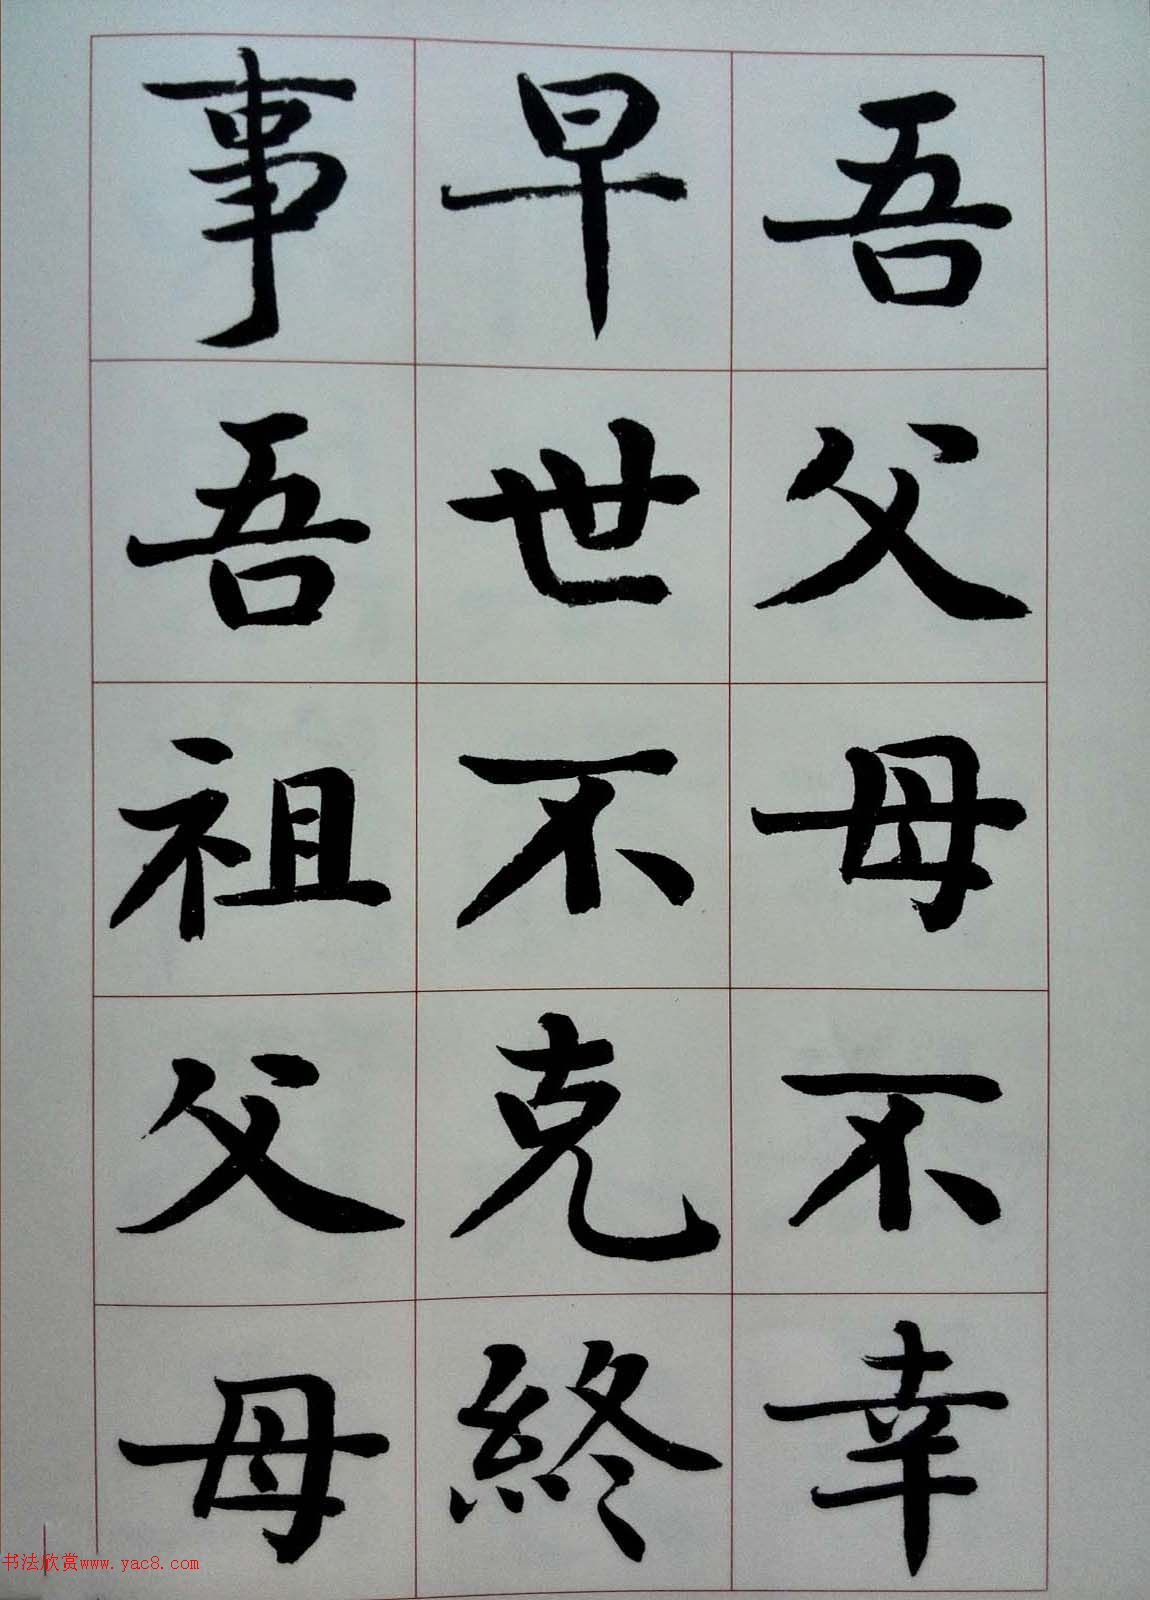 吾父母不幸
早世不克終
事吾祖父母
书法欣赏www.yac8.com